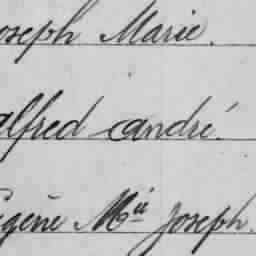 oseph Marie.
alfred André.
ugène Mie Joseph.